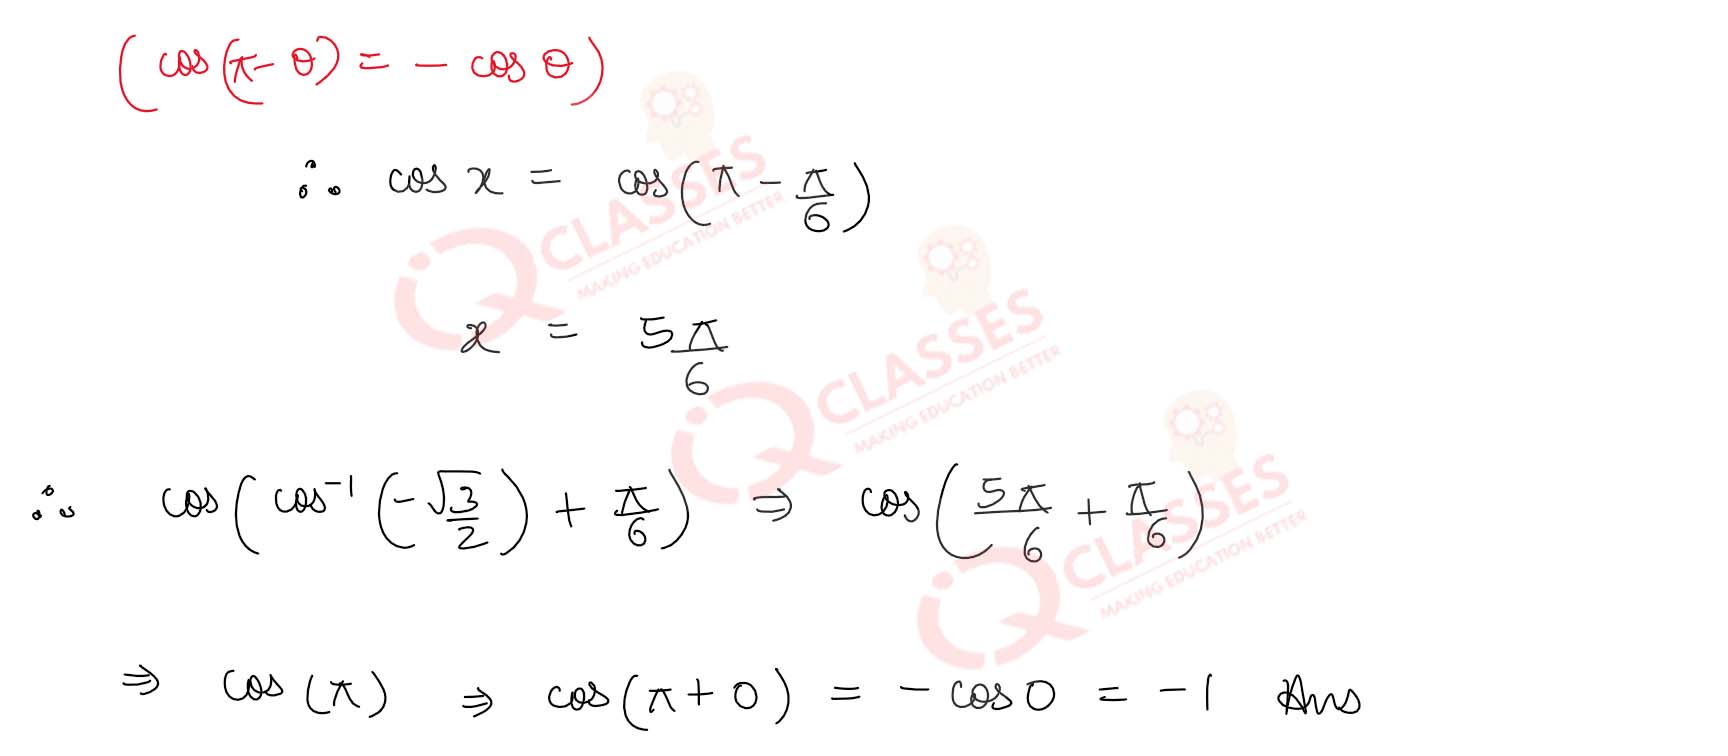 (cos(π- θ) = - cos θ)
∴ cos x = cos(π - π/6)
x = 5π/6
∴ cos(cos⁻¹(-√3/2) + π/6) ⇒ cos(5π/6 + π/6)
⇒ cos(π) ⇒ cos(π + 0) = - cos 0 = -1 Ans
iQ CLASSES
MAKING EDUCATION BETTER
iQ CLASSES
MAKING EDUCATION BETTER
iQ CLASSES
MAKING EDUCATION BETTER